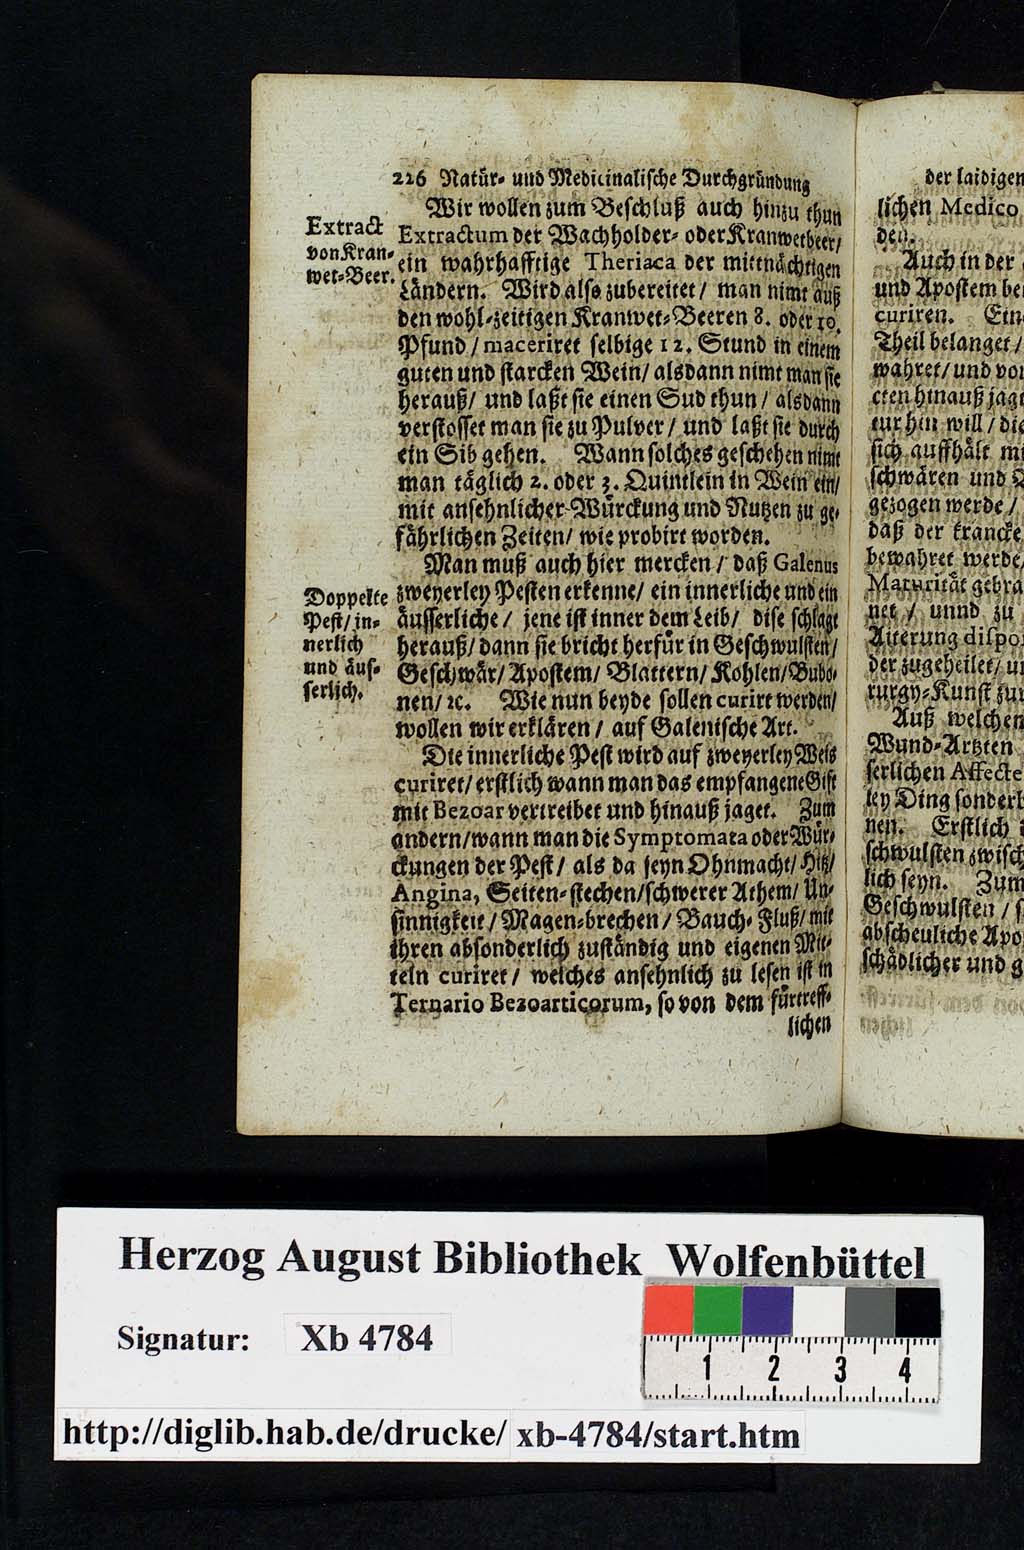 226 Natür- und Medicinalische Durchgründung
Wir wollen zum Beschluß auch hinzu thun
Extractum der Wachholder- oder Kranwetbeer/
ein wahrhafftige Theriaca der mittnächtigen
Ländern. Wird also zubereitet / man nimt auß
den wohl-zeitigen Kranwet-Beeren 8. oder 10.
Pfund / maceriret selbige 12. Stund in einem
guten und starcken Wein / alsdann nimt man sie
herauß / und laßt sie einen Sud thun / alsdann
verstosset man sie zu Pulver / und laßt sie durch
ein Sib gehen. Wann solches geschehen nimt
man täglich 2. oder 3. Quintlein in Wein ein/
mit ansehnlicher Würckung und Nutzen zu ge-
fährlichen Zeiten / wie probirt worden.
Man muß auch hier mercken / daß Galenus
zweyerley Pesten erkenne / ein innerliche und ein
äusserliche / jene ist inner dem Leib / dise schlagt
herauß / dann sie bricht herfür in Geschwulsten /
Geschwär / Apostem / Blattern / Kohlen / Bubo-
nen / ꝛc. Wie nun beyde sollen curirt werden /
wollen wir erklären / auf Galenische Art.
Die innerliche Pest wird auf zweyerley Weis
curiret / erstlich wann man das empfangene Gift
mit Bezoar vertreibet und hinauß jaget. Zum
andern / wann man die Symptomata oder Wür-
ckungen der Pest / als da seyn Ohnmacht / Hitz /
Angina, Seiten-stechen / schwerer Athem / Un-
sinnigkeit / Magen-brechen / Bauch-Fluß / mit
ihren absonderlich zuständig und eigenen Mit-
teln curiret / welches ansehnlich zu lesen ist in
Ternario Bezoarticorum, so von dem fürtreff-
lichen
Extract
von Kran-
wet-Beer.
Doppelte
Pest / in-
nerlich
und äus-
serlich.
der laidigen
lichen Medico
den.
Auch in der
und Apostem be
curiren. Ein
Theil belanget /
wahret / und vo
cten hinauß jagt
tur hin will / die
sich auffhält mi
schwären und
gezogen werde /
daß der krancke
bewahret werde/
Maturität gebra
net / unnd zu
Aiterung dispo
der zugeheilet / u
rurgy-Kunst zu
Auß welchen
Wund-Artzten
serlichen Affecte
ley Ding sonderb
nen. Erstlich
schwulsten zwisch
lich seyn. Zum
Geschwulsten / s
abscheuliche Apo
schädlicher und g
Herzog August Bibliothek Wolfenbüttel
Signatur: Xb 4784
1 2 3 4
http://diglib.hab.de/drucke/ xb-4784/start.htm